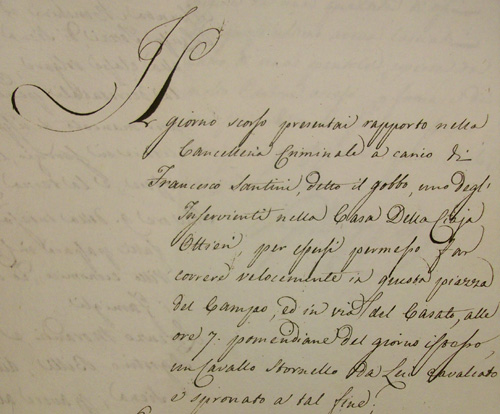 Il giorno scorso presentai rapporto nella
Cancelleria Criminale a carico di
Francesco Santini, detto il gobbo, uno degl'
Inservienti nella Casa Della Ciaja
Ottieri, per essersi permesso far
correre velocemente in questa piazza
del Campo, ed in via del Casato, alle
ore 7. pomeridiane del giorno istesso,
un Cavallo Stornello da Lui cavalcato
e spronato a tal fine.